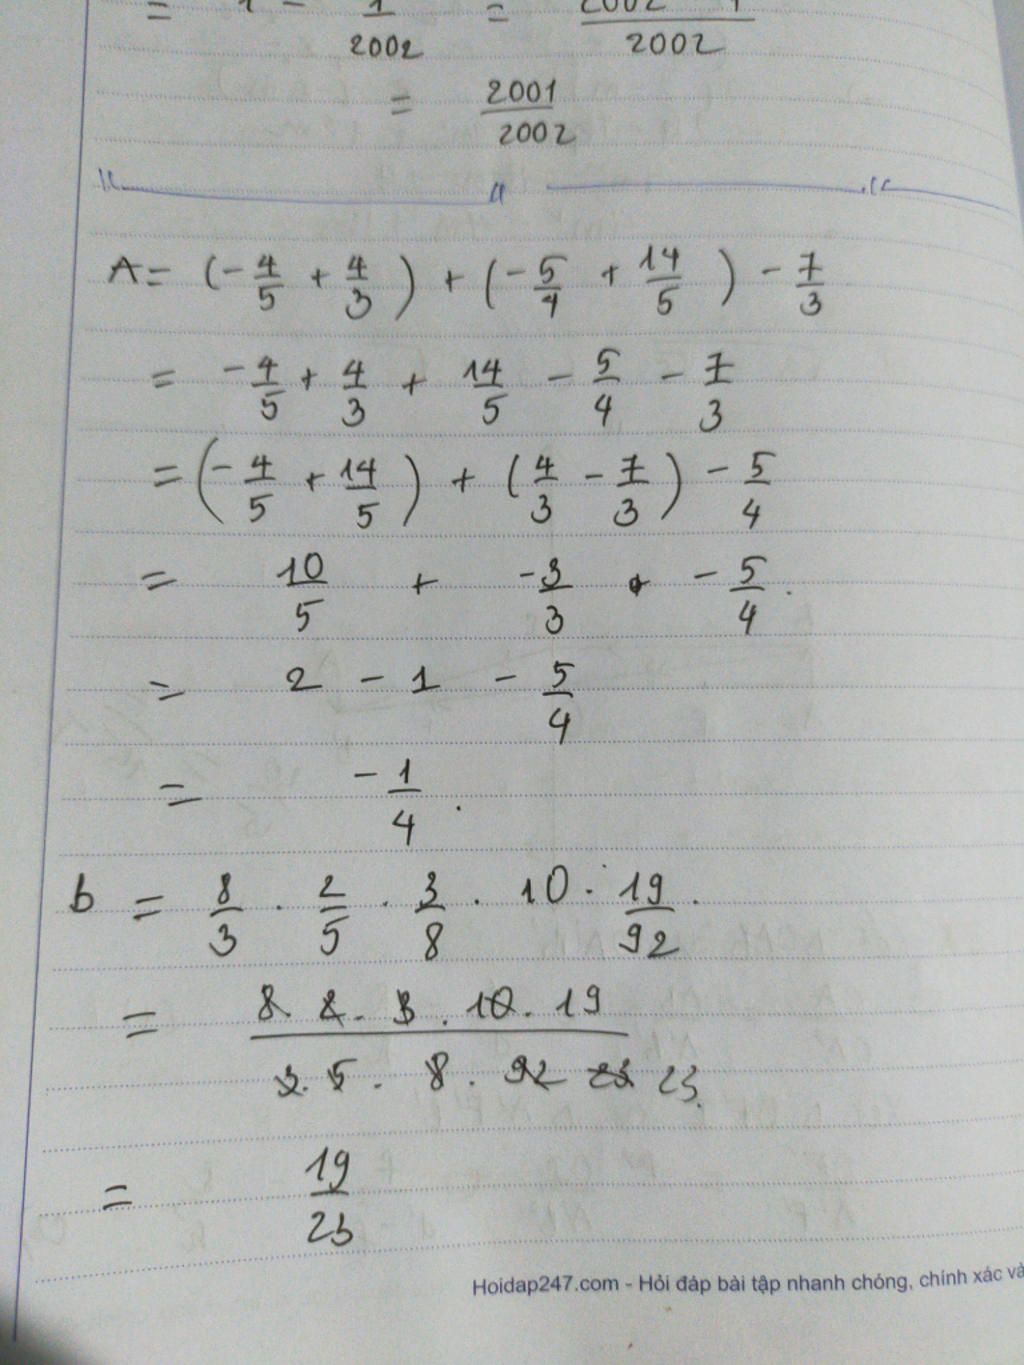 = 1 - 1/2002 = 2002 - 1/2002
= 2001/2002
A = (-4/5 + 4/3) + (-5/4 + 14/5) - 7/3
= -4/5 + 4/3 + 14/5 - 5/4 - 7/3
= (-4/5 + 14/5) + (4/3 - 7/3) - 5/4
= 10/5 + -3/3 + -5/4.
= 2 - 1 - 5/4
= -1/4.
b = 8/3 . 2/5 . 3/8 . 10 . 19/92.
= 8. 2. 3. 10. 19/3. 5. 8. 92 23 23.
= 19/23
Hoidap247.com - Hỏi đáp bài tập nhanh chóng, chính xác và